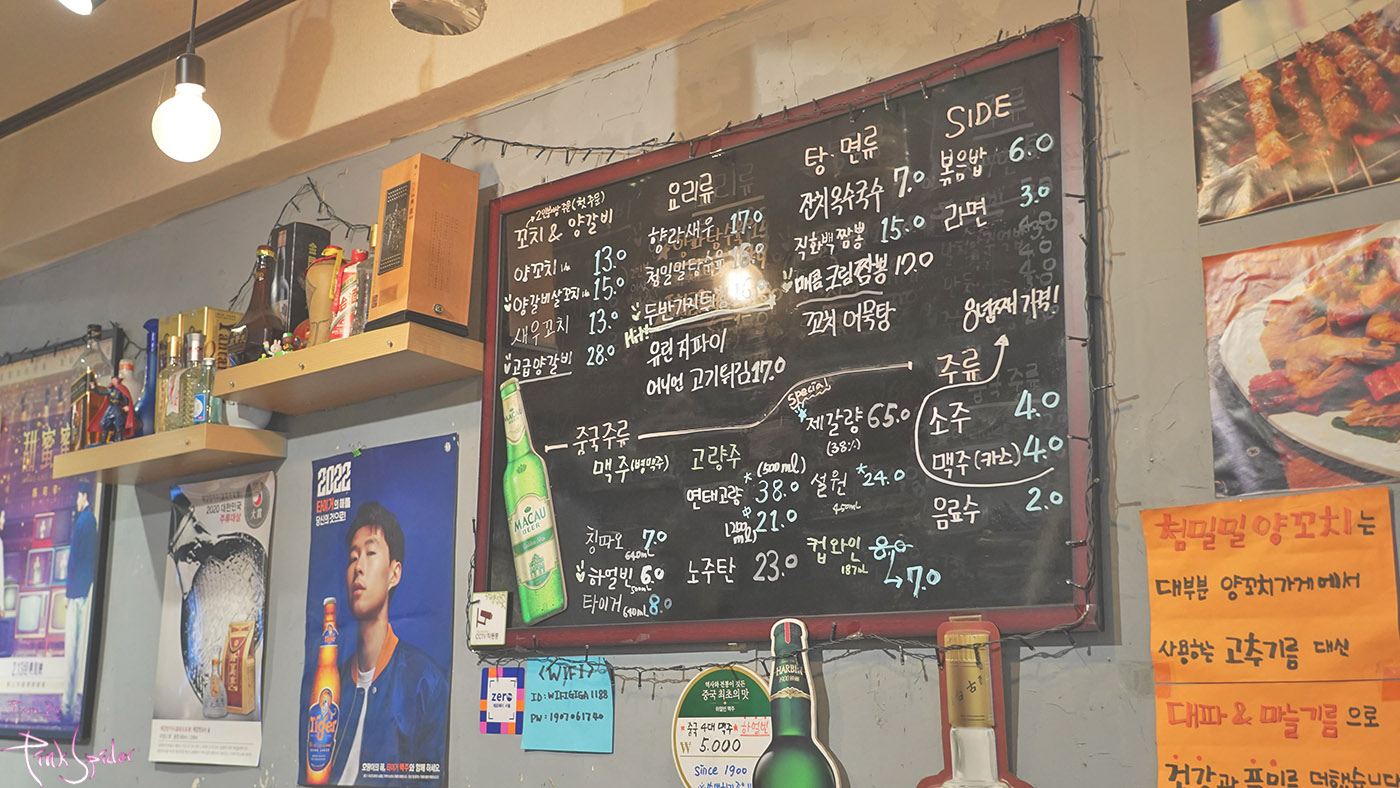 2인분씩 주문(첫주문)
꼬치 & 양갈비
양꼬치 13.0
양갈비살꼬치 15.0
새우꼬치 13.0
고급양갈비 28.0
요리류
향라새우 17.0
첨밀밀탕수육
두반가지튀김
Hit!
유린지파이
어니언 고기튀김 17.0
탕·면류
잔치옥수국수 7.0
직화백짬뽕 15.0
매콤크림짬뽕 17.0
꼬치어묵탕
SIDE
볶음밥 6.0
라면 3.0
8년째 가격!
주류
소주 4.0
맥주(카스) 4.0
음료수 2.0
중국주류
special
맥주(병맥주)
칭따오 7.0
640ml
하얼빈 6.0
500ml
타이거 8.0
640ml
고량주
(500ml)
연태고량 38.0
21.0
노주탄 23.0
제갈량 65.0
(38%)
설원 24.0
450ml
컵와인 8.0
187ml
7.0
MACAU
BEER
CCTV 작동중
zero
<WIFI>
ID: WIFIGIGA1188
PW: 1907061740
역사와 전통이 깊은
중국 최초의 맛
하얼빈 맥주
중국 4대 맥주 하얼빈
₩ 5.000
since 1900
HARBIN
甜蜜蜜
2020 대한민국
주류대상
大賞
2022
타이거의 해를
당신의 것으로!
Tiger
첨밀밀양꼬치는
대부분 양꼬치가게에서
사용하는 고추기름 대신
대파 & 마늘기름으로
건강과 풍미를 더했습니다
Pink Spider